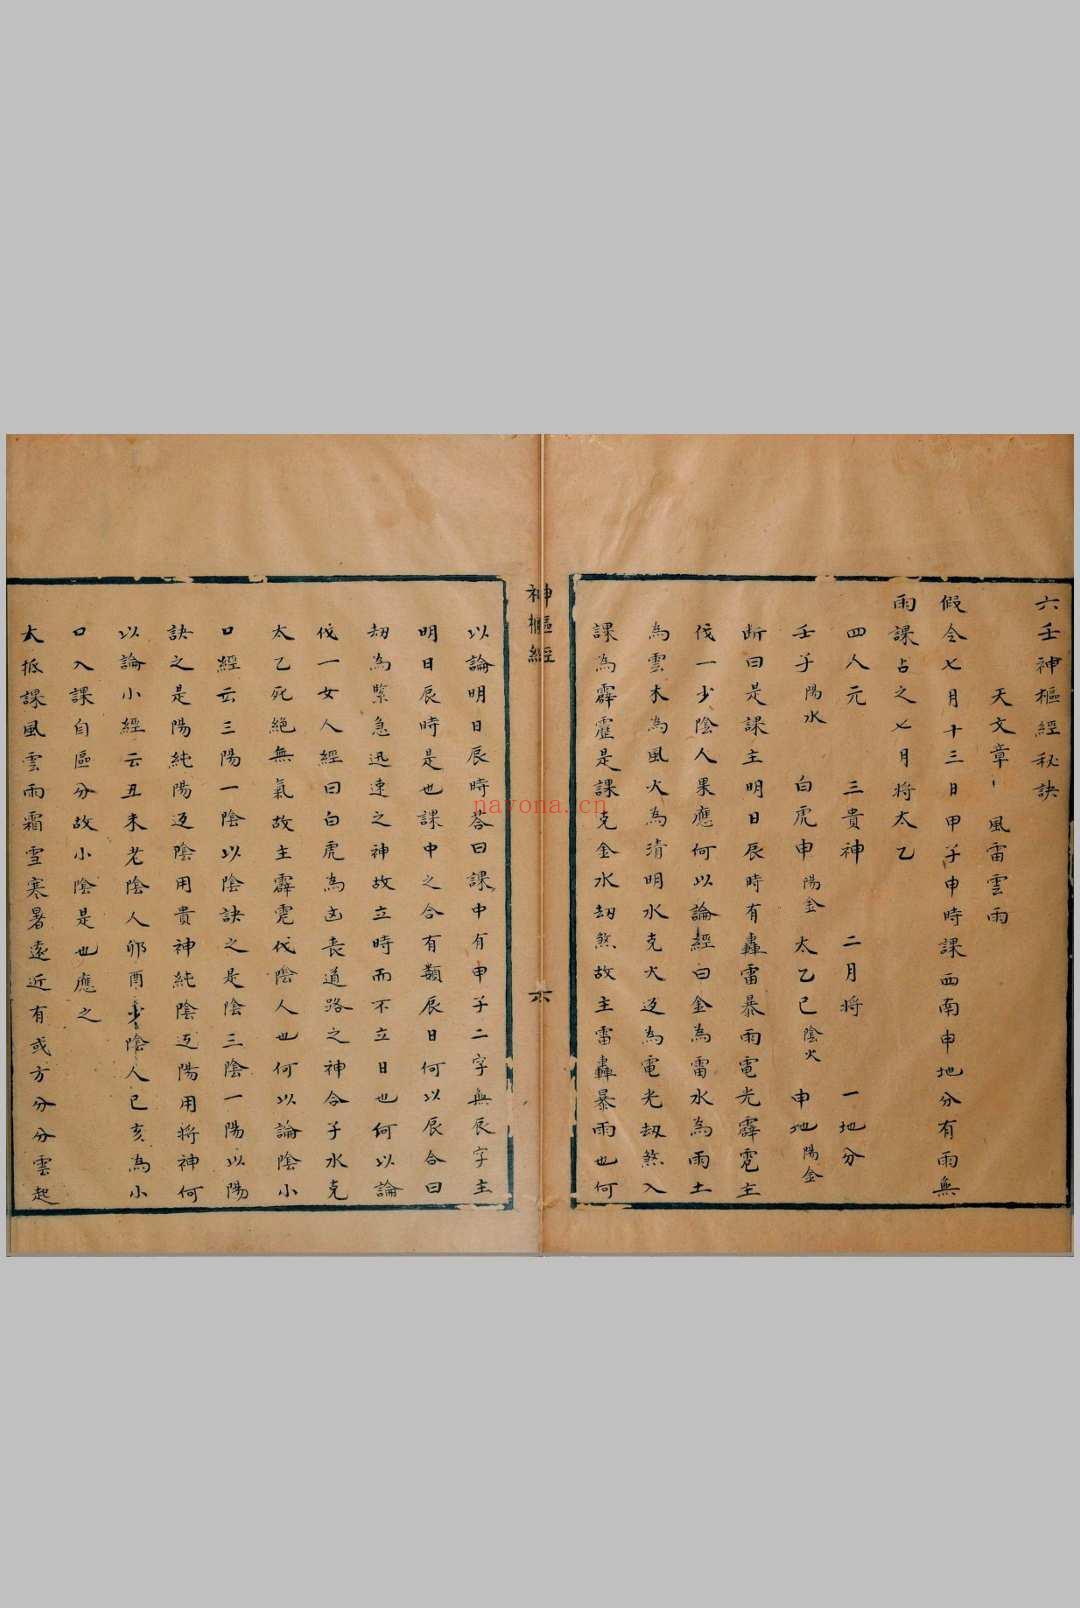 六壬神樞經秘訣
天文章 風雷雲雨
假令七月十三日甲子申時課西南申地分有雨無
雨課占之七月將太乙
四人元 三貴神 二月將 一地分
壬子陽水 白虎申陽金 太乙巳陰火 申地陽金
断曰是課主明日辰時有轟雷暴雨電光霹雹主
伐一少陰人果應何以論經曰金為雷水為雨土
為雲木為風火為清明水克火迈為電光刼煞入
課為霹靂是課克金水刼煞故主雷轟暴雨也何
神樞經
以論明日辰時荅曰課中有申子二字無辰字主
明日辰時是也課中之合有類辰日何以辰合曰
刼為緊急迅速之神故立時而不立日也何以論
伐一女人經曰白虎為凶喪道路之神合子水克
太乙死絕無氣故主霹雹伐陰人也何以論陰小
口經云三陽一陰以陰訣之是陰三陰一陽以陽
訣之是陽純陽迈陰用貴神純陰迈陽用將神何
以論小經云丑未老陰人卯酉少陰人巳亥為小
口入課自區分故小陰是也應之
大抵課風雲雨霜雪寒暑遠近有或方分分雲起
navona.cn